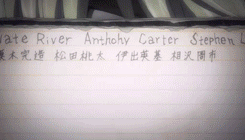 ate River Anthony Carter Stephen L
木完造 松田桃太 伊出英基 相沢周市